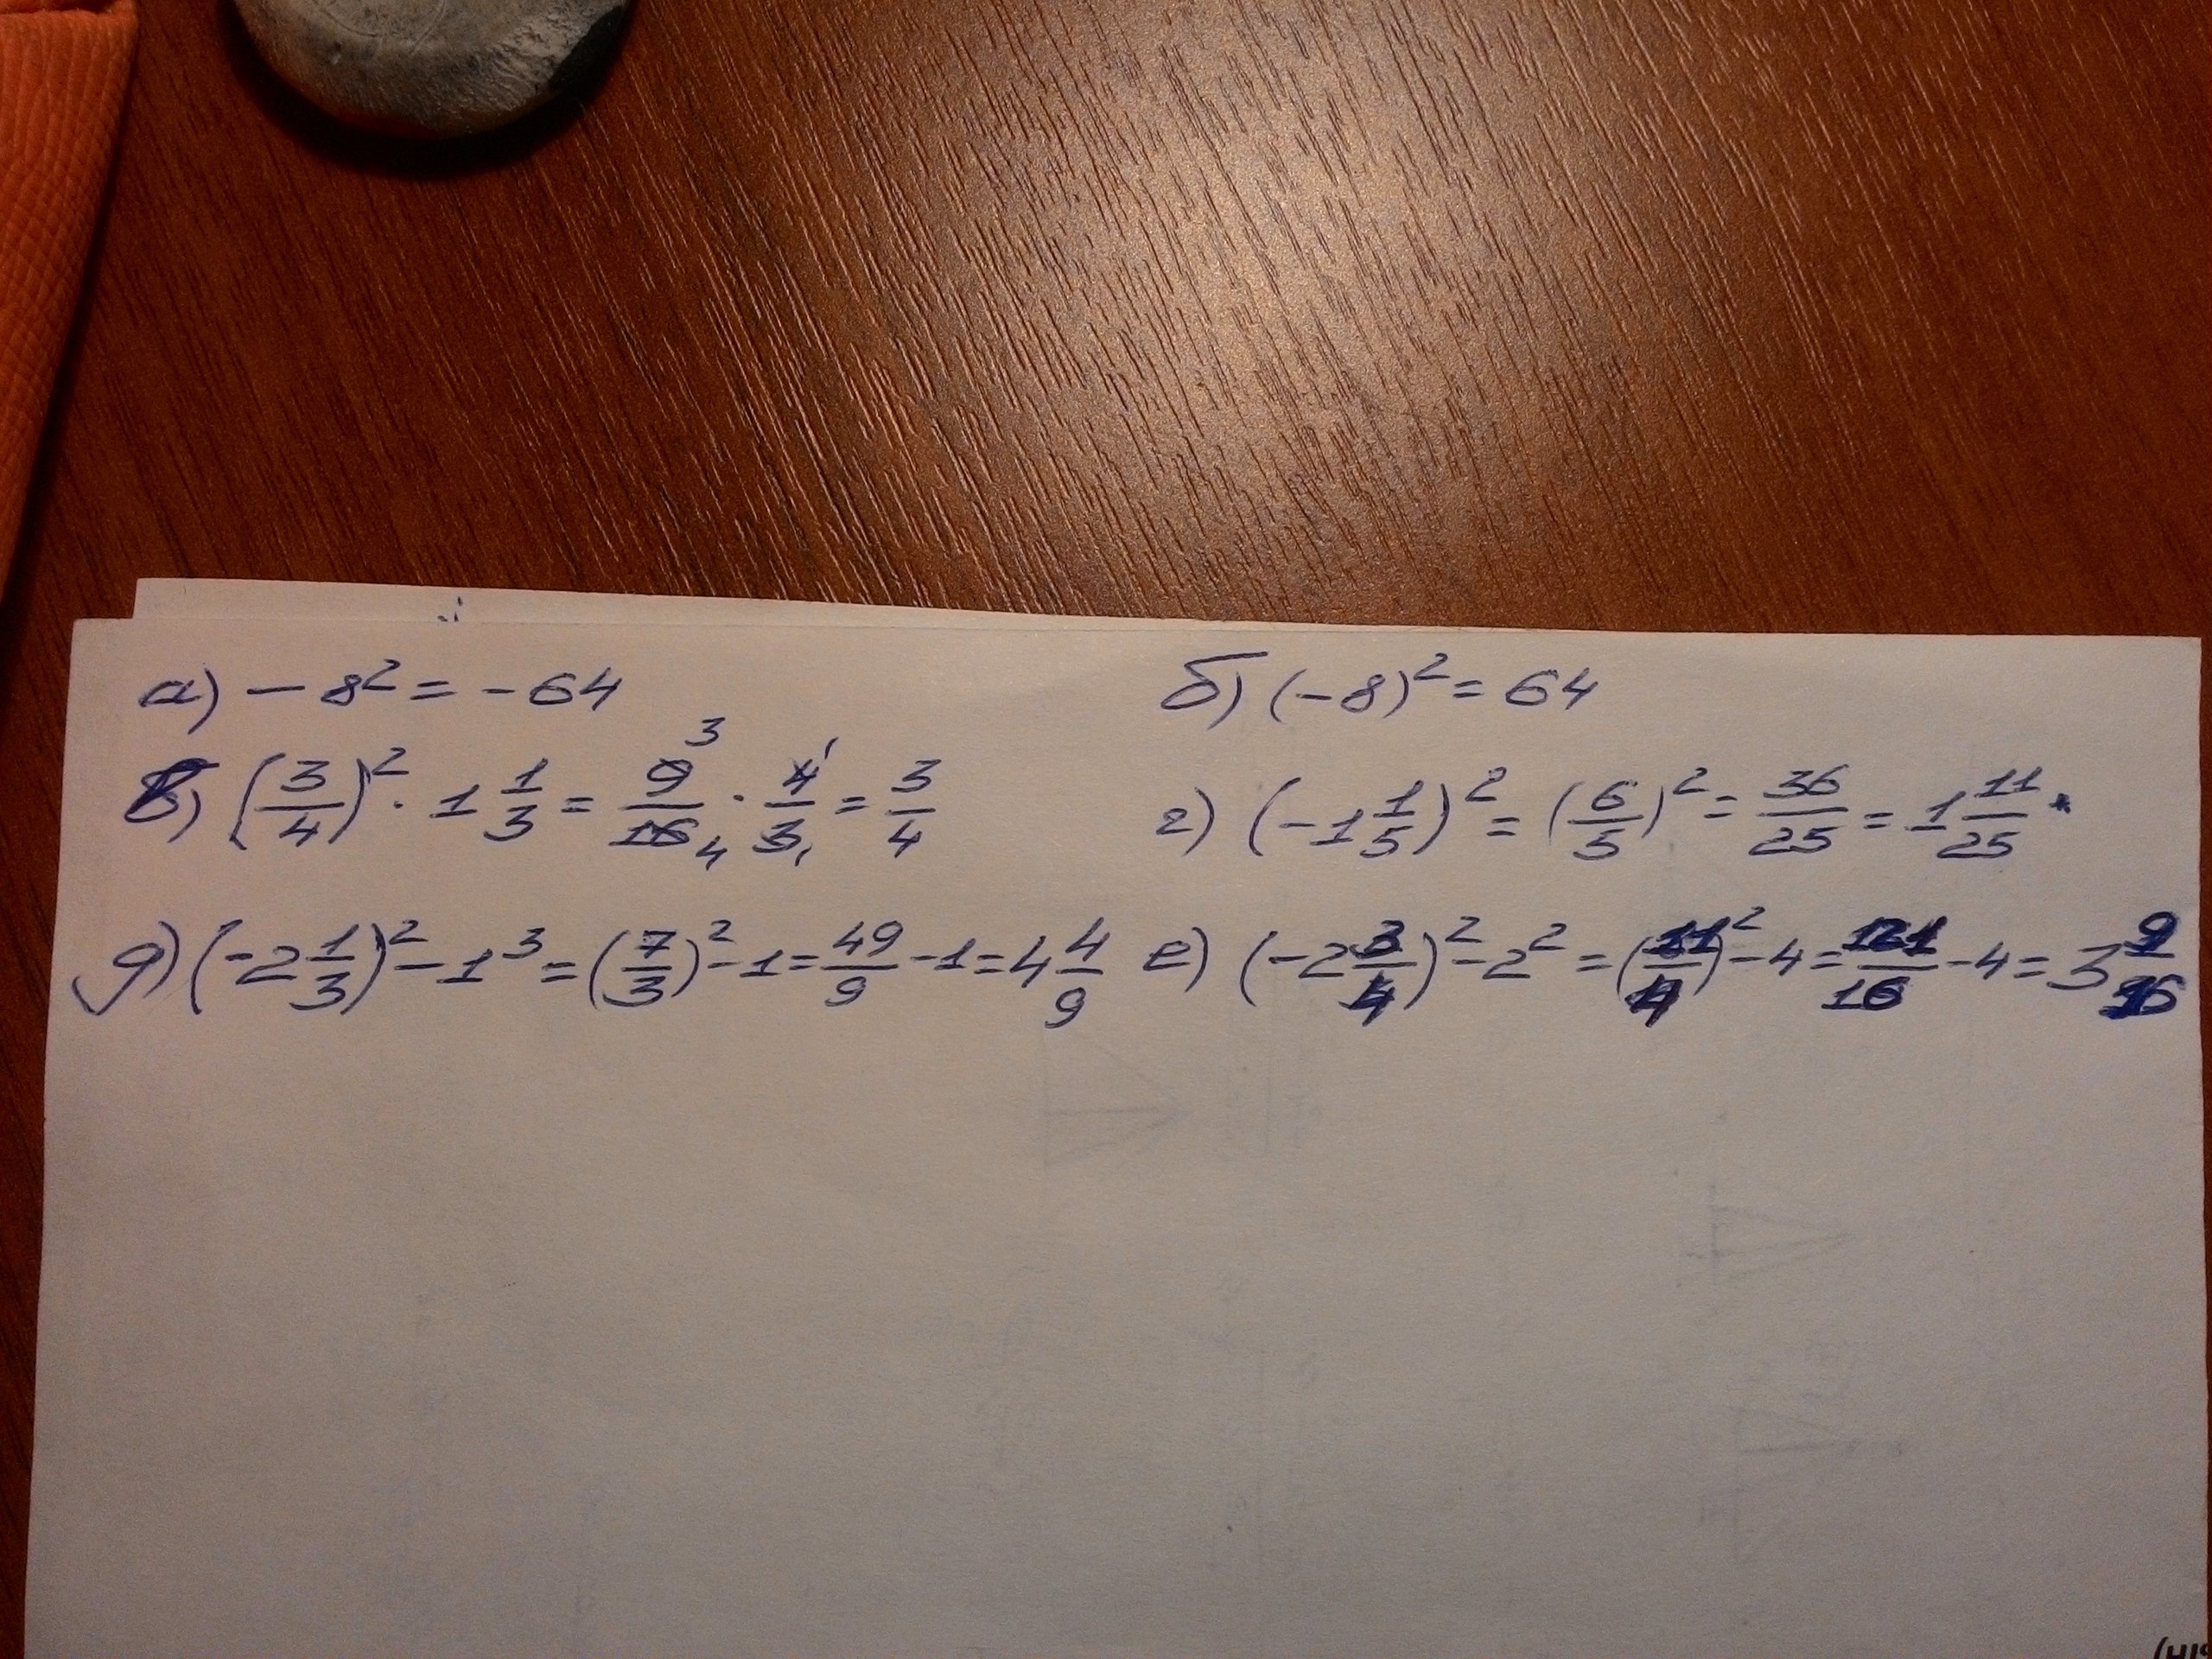 а) - 8² = - 64
б) (-8)² = 64
в) (3/4)² · 1 1/3 = 9/16 · 4/3 = 3/4
3 1 4 1
г) (-1 1/5)² = (6/5)² = 36/25 = 1 11/25
д) (-2 1/3)² - 1³ = (7/3)² - 1 = 49/9 - 1 = 4 4/9
е) (-2 3/4)² - 2² = (11/4)² - 4 = 121/16 - 4 = 3 9/16